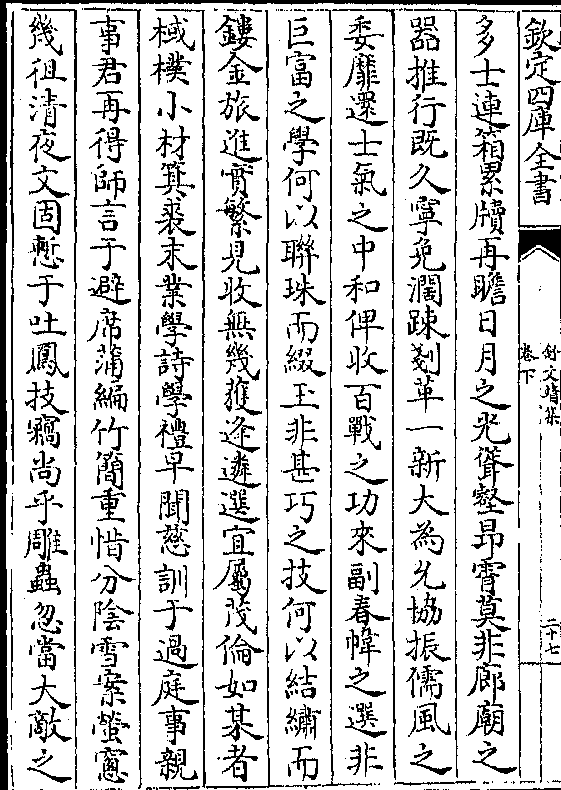 欽定四庫全書
舒文靖集
卷下
二十七
多士連箱累牘再瞻日月之光聳壑昂霄莫非廊廟之
器推行既久寧免濶踈剗革一新大為允協振儒風之
委靡還士氣之中和俾收百戰之功來副春幃之選非
巨富之學何以聯珠而綴玉非甚巧之技何以結繡而
鏤金旅進實繁見收無幾獲逢遴選宜屬茂倫如某者
棫樸小材箕裘末業學詩學禮早聞慈訓于過庭事親
事君再得師言于避席蒲編竹簡重惜分陰雪案螢窻
幾徂清夜文固慙于吐鳳技竊尚乎雕蟲忽當大敵之